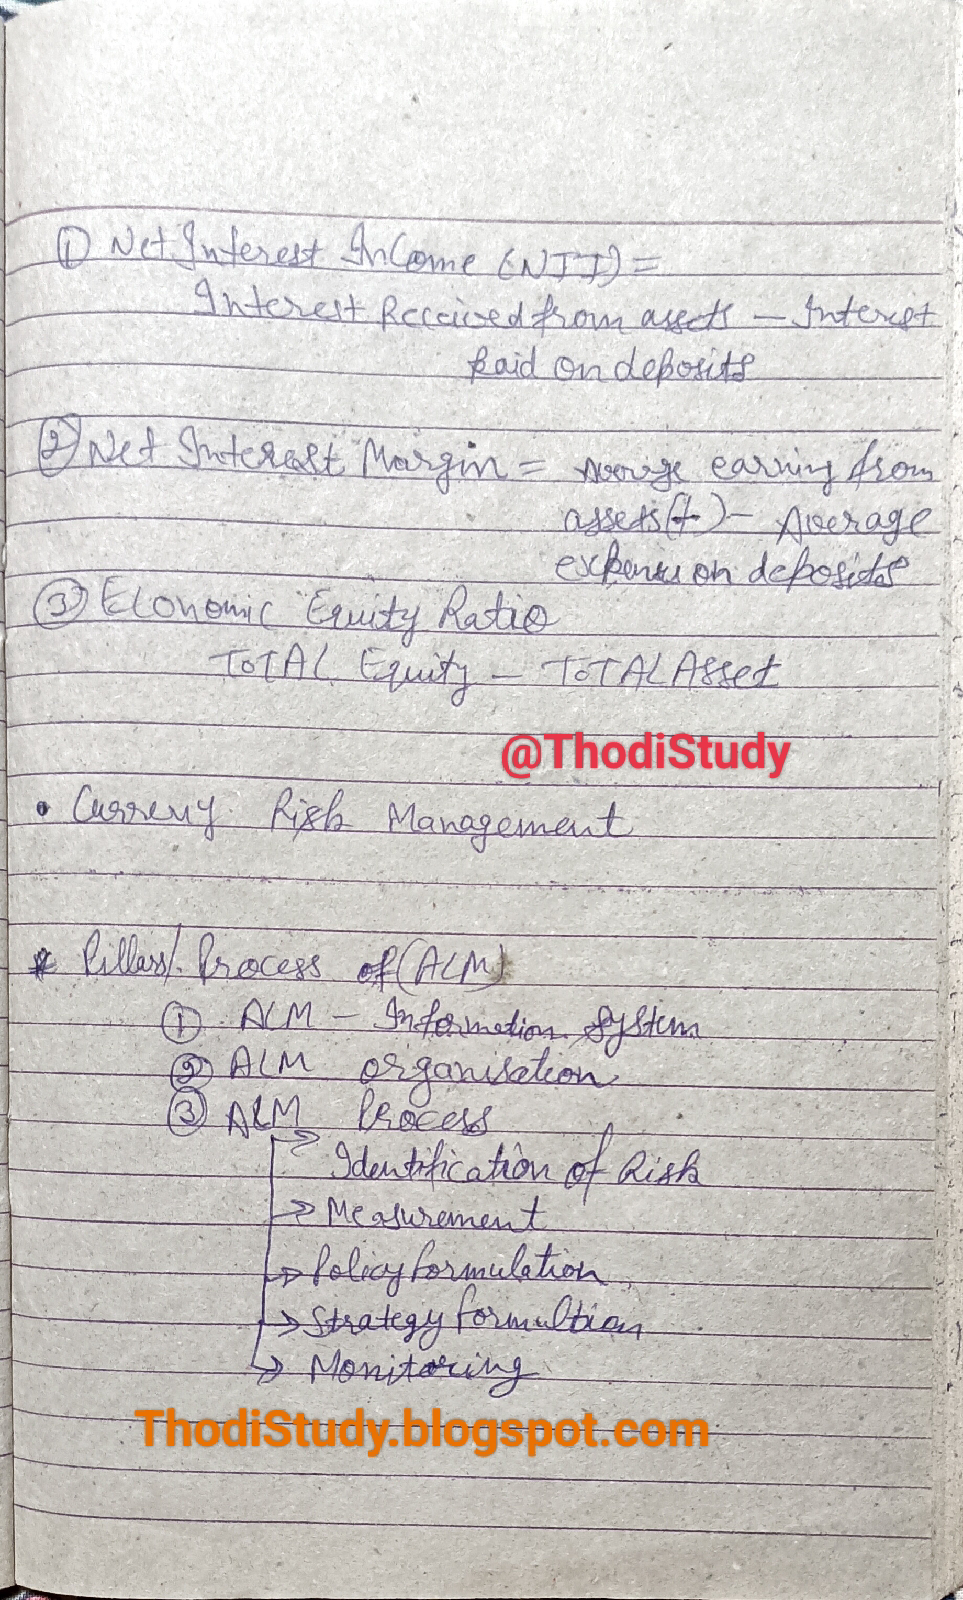 ① Net Interest Income (NII) =
Interest Received from assets – Interest
Paid on deposits
② Net Interest Margin = Averge earning from
assets(+) – Average
expense on deposits
③ Economic Equity Ratio
TOTAL Equity – TOTAL Asset
@ThodiStudy
• Currency Risk Management
* Pillars/. Process of (ALM)
① ALM – Information System
② ALM organisation
③ ALM Process
→ Identification of Risk
→ Measurement
→ Policy formulation
→ Strategy formultion
→ Monitoring
ThodiStudy.blogspot.com